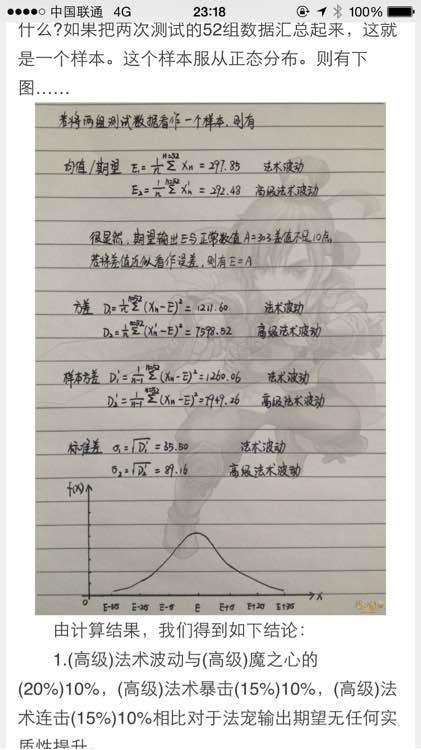 中国联通 4G 23:18 100%
什么?如果把两次测试的52组数据汇总起来，这就
是一个样本。这个样本服从正态分布。则有下
图……
若将两组测试数据看作一个样本,则有
均值/期望 E₁=1/n Σⁿ⁼⁵² Xₙ = 297.85 法术波动
E₂=1/n Σⁿ⁼⁵² Xₙ' = 292.48 高级法术波动
很显然,期望输出E与正常数值A=303差值不足10点,
若将差值近似看作误差,则有E=A
方差 D₁=1/n Σⁿ⁼⁵² (Xₙ-E)² = 1211.60 法术波动
D₂=1/n Σⁿ⁼⁵² (Xₙ'-E)² = 7598.52 高级法术波动
样本方差 D₁'=1/n-1 Σⁿ⁼⁵² (Xₙ-E)² = 1260.06 法术波动
D₂'=1/n-1 Σⁿ⁼⁵² (Xₙ-E)² = 7949.26 高级法术波动
标准差 σ₁=√D₁' = 35.50 法术波动
σ₂=√D₂' = 89.16 高级法术波动
f(x)
0 E-3σ E-2σ E-σ E E+σ E+2σ E+3σ X
由计算结果，我们得到如下结论：
1.(高级)法术波动与(高级)魔之心的
(20%)10%，(高级)法术暴击(15%)10%，(高级)法
术连击(15%)10%相比对于法宠输出期望无任何实
质性提升。